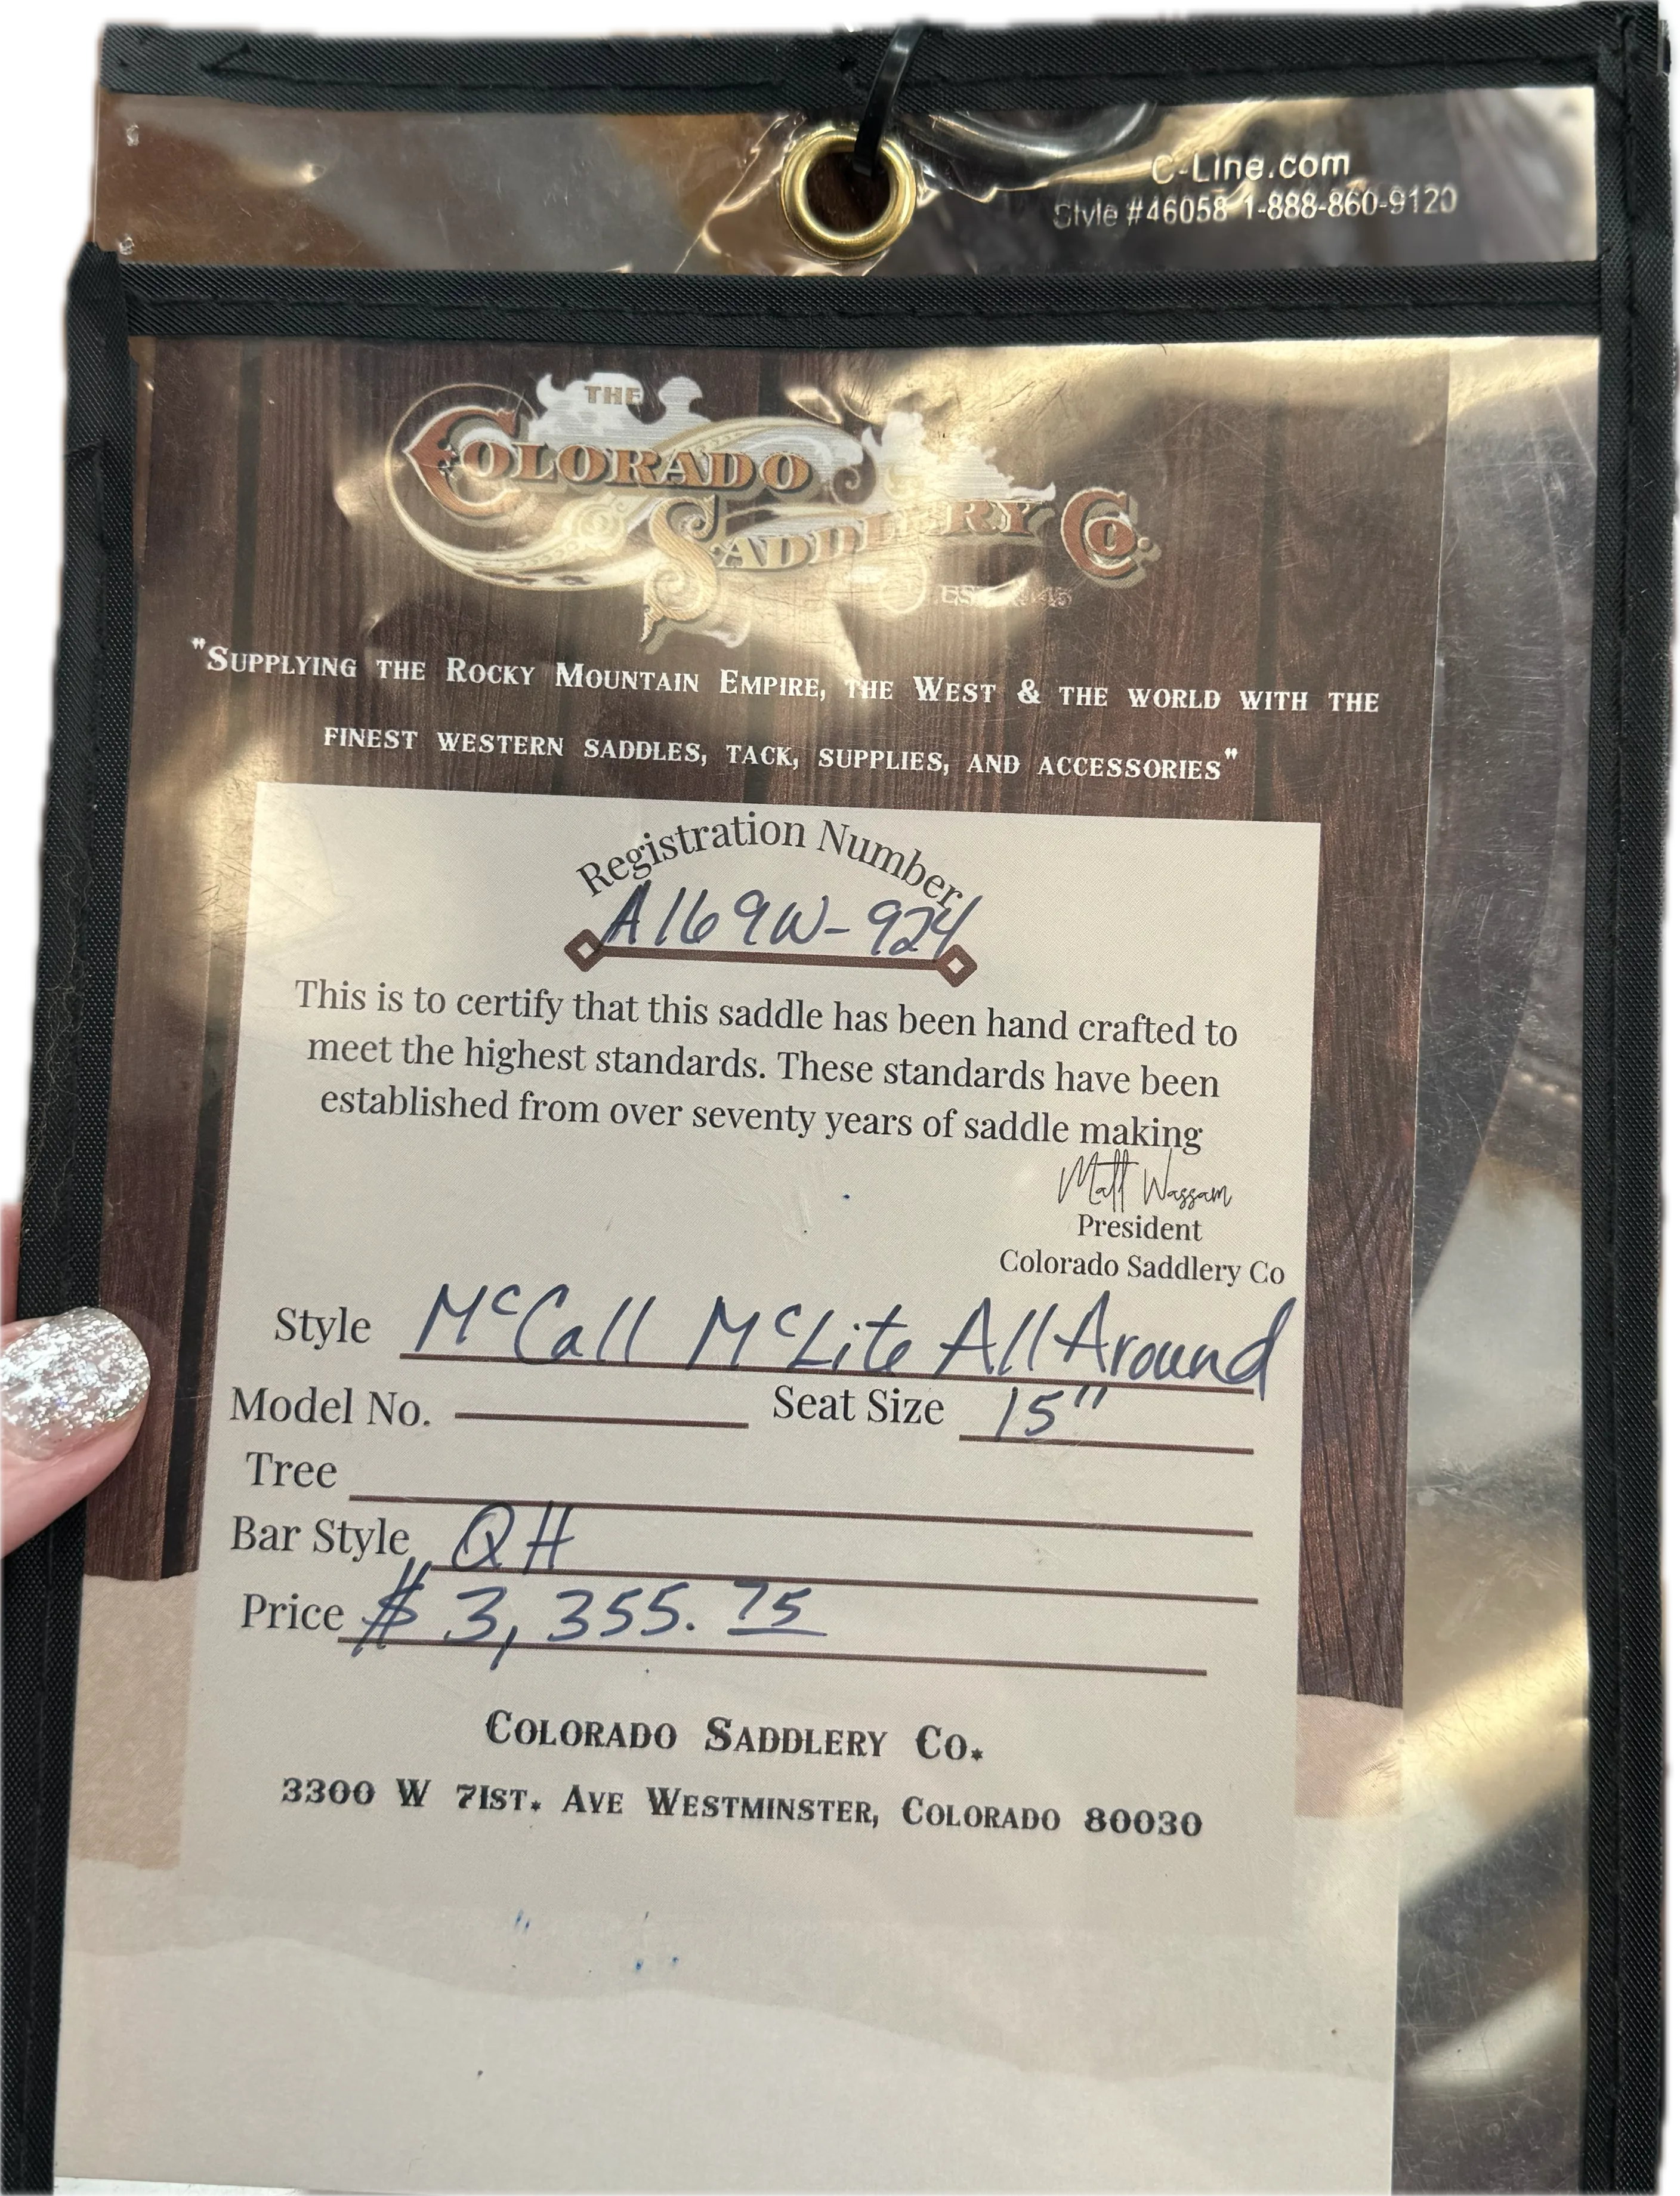 C-Line.com
Style #46058 1-888-860-9120
THE
COLORADO
SADDLERY CO.
EST. 1945
"SUPPLYING THE ROCKY MOUNTAIN EMPIRE, THE WEST & THE WORLD WITH THE
FINEST WESTERN SADDLES, TACK, SUPPLIES, AND ACCESSORIES"
Registration Number
A169W-924
This is to certify that this saddle has been hand crafted to
meet the highest standards. These standards have been
established from over seventy years of saddle making
Matt Wassam
President
Colorado Saddlery Co
Style McCall McLite All Around
Model No. Seat Size 15"
Tree
Bar Style QH
Price $3,355.75
COLORADO SADDLERY CO.
3300 W 71ST. AVE WESTMINSTER, COLORADO 80030